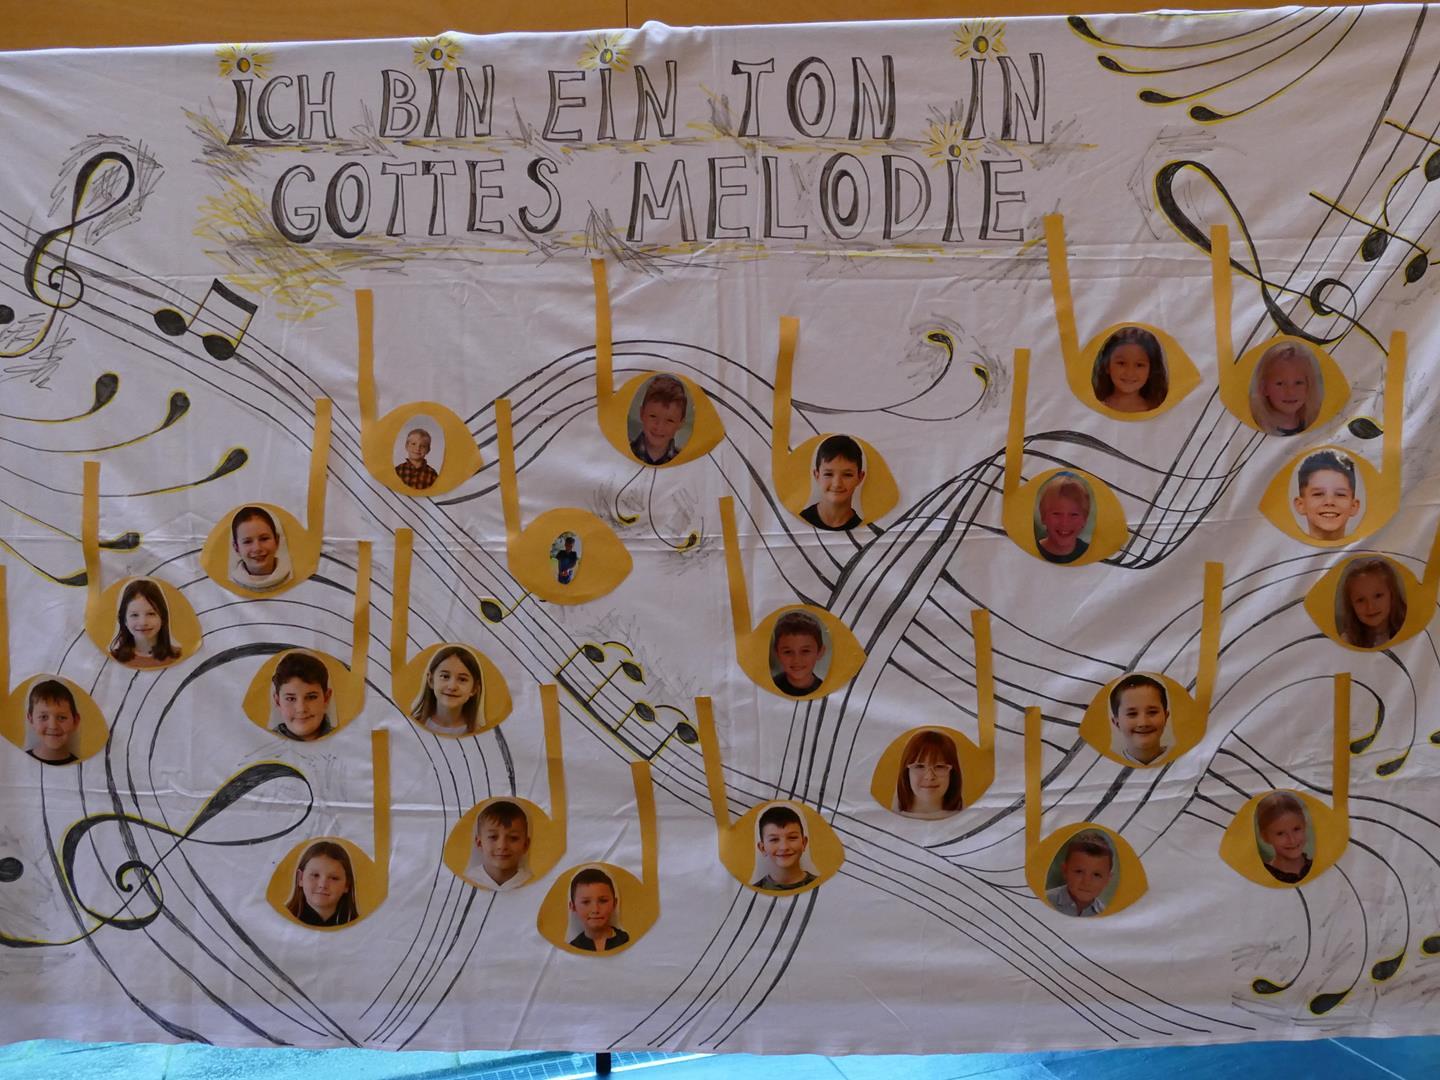 iCH BiN EiN TON iN
GOTTES MELODiE